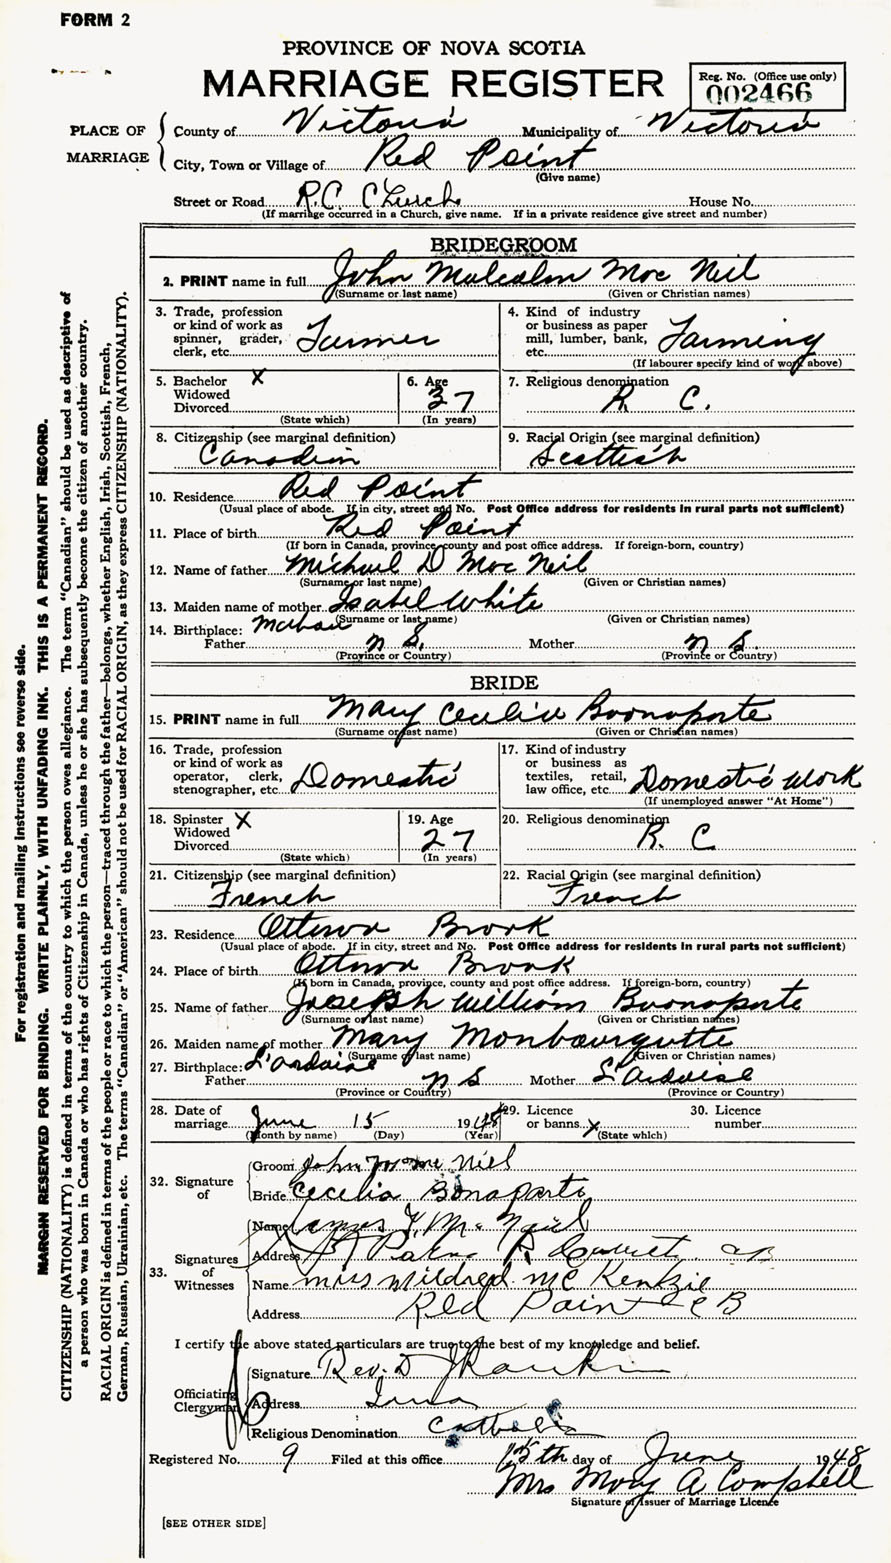 FORM 2
PROVINCE OF NOVA SCOTIA
MARRIAGE REGISTER
Reg. No. (Office use only)
002466
PLACE OF MARRIAGE
County of Victoria Municipality of Victoria
City, Town or Village of Red Point
(Give name)
Street or Road R.C. Church House No.
(If marriage occurred in a Church, give name. If in a private residence give street and number)
BRIDEGROOM
2. PRINT name in full John Malcolm Mac Neil
(Surname or last name) (Given or Christian names)
3. Trade, profession or kind of work as spinner, grader, clerk, etc. Farmer
4. Kind of industry or business as paper mill, lumber, bank, etc. Farming
(If labourer specify kind of work above)
5. Bachelor X
Widowed
Divorced
(State which)
6. Age 37
(In years)
7. Religious denomination R. C.
8. Citizenship (see marginal definition)
Canadian
9. Racial Origin (see marginal definition)
Scottish
10. Residence Red Point
(Usual place of abode. If in city, street and No. Post Office address for residents in rural parts not sufficient)
11. Place of birth Red Point
(If born in Canada, province, county and post office address. If foreign-born, country)
12. Name of father Michael D Mac Neil
(Surname or last name) (Given or Christian names)
13. Maiden name of mother Isabel White
(Surname or last name) (Given or Christian names)
14. Birthplace:
Father N. S. Mother N S
(Province or Country) (Province or Country)
BRIDE
15. PRINT name in full Mary Cecelia Boonaparte
(Surname or last name) (Given or Christian names)
16. Trade, profession or kind of work as operator, clerk, stenographer, etc. Domestic
17. Kind of industry or business as textiles, retail, law office, etc. Domestic Work
(If unemployed answer "At Home")
18. Spinster X
Widowed
Divorced
(State which)
19. Age 27
(In years)
20. Religious denomination R. C
21. Citizenship (see marginal definition)
French
22. Racial Origin (see marginal definition)
French
23. Residence Ottawa Brook
(Usual place of abode. If in city, street and No. Post Office address for residents in rural parts not sufficient)
24. Place of birth Ottawa Brook
(If born in Canada, province, county and post office address. If foreign-born, country)
25. Name of father Joseph William Boonaparte
(Surname or last name) (Given or Christian names)
26. Maiden name of mother Mary Monbourgutte
(Surname or last name) (Given or Christian names)
27. Birthplace: L'Ardoise
Father N S Mother L'Ardoise
(Province or Country) (Province or Country)
28. Date of marriage June 15 1948
(Month by name) (Day) (Year)
29. Licence or banns X
(State which)
30. Licence number
32. Signature of
Groom John Neil
Bride Cecelia Bonaparte
33. Signatures of Witnesses
Name James Mc Neil
Address
Name Miss Mildred Mc Kenzie
Address Red Point C B
I certify the above stated particulars are true to the best of my knowledge and belief.
Officiating Clergyman
Signature Rev. D J Rankin
Address Iona
Religious Denomination Catholic
Registered No. 9 Filed at this office 15th day of June 1948
Mrs Mary A Campbell
Signature of Issuer of Marriage Licence
[SEE OTHER SIDE]
For registration and mailing instructions see reverse side.
MARGIN RESERVED FOR BINDING. WRITE PLAINLY, WITH UNFADING INK. THIS IS A PERMANENT RECORD.
CITIZENSHIP (NATIONALITY) is defined in terms of the country to which the person owes allegiance. The term "Canadian" should be used as descriptive of
a person who was born in Canada or who has rights of Citizenship in Canada, unless he or she has subsequently become the citizen of another country.
RACIAL ORIGIN is defined in terms of the people or race to which the person—traced through the father—belongs, whether English, Irish, Scottish, French,
German, Russian, Ukrainian, etc. The terms "Canadian" or "American" should not be used for RACIAL ORIGIN, as they express CITIZENSHIP (NATIONALITY).